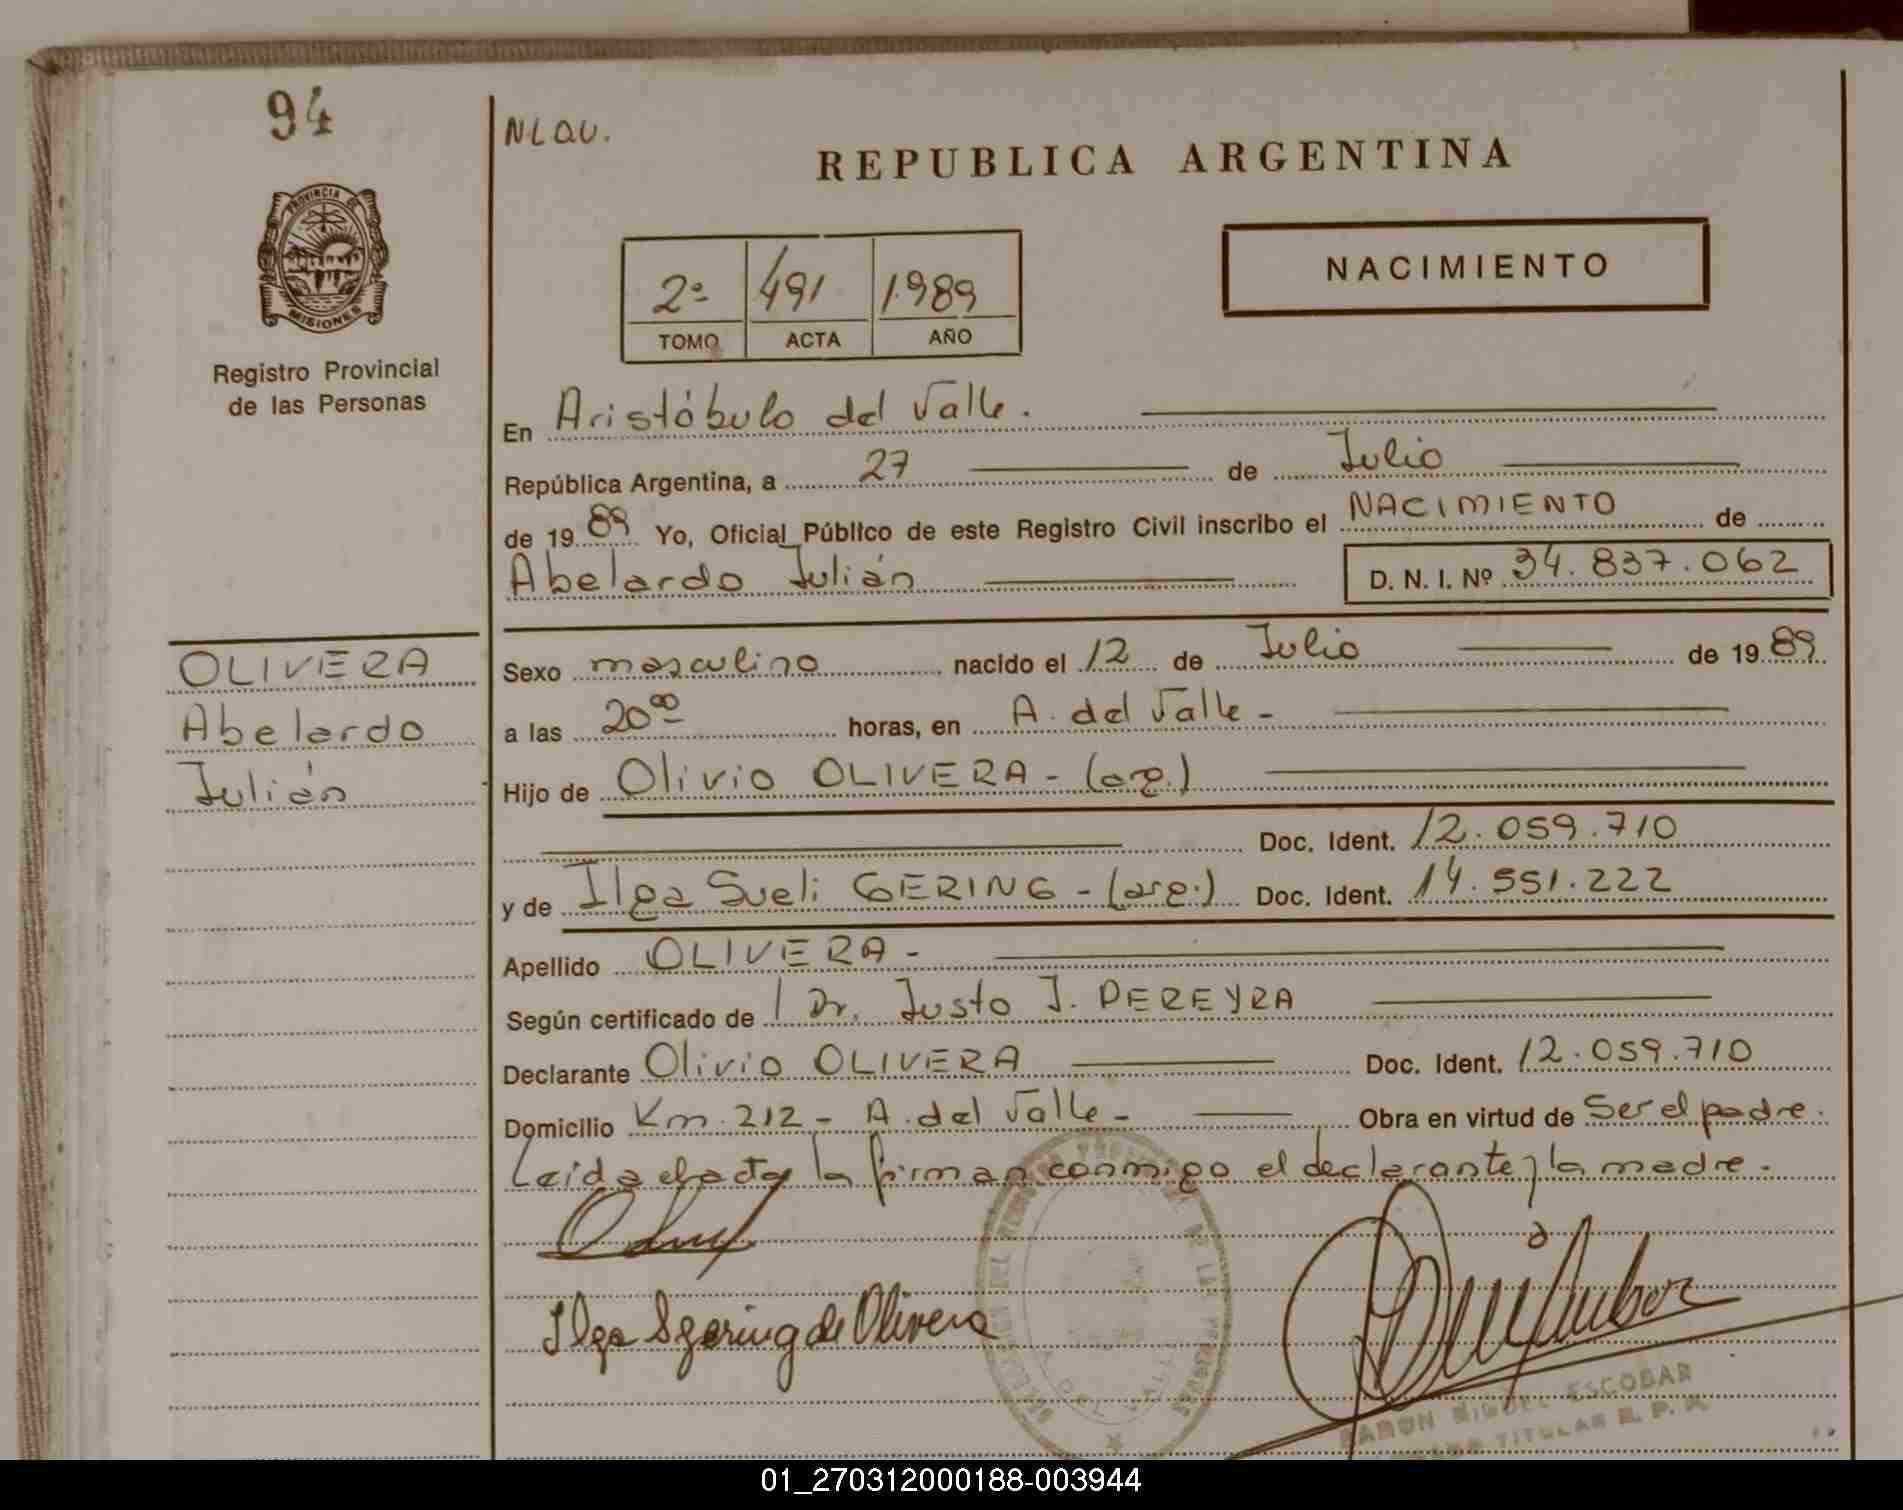 94
NLQU.
REPUBLICA ARGENTINA
PROVINCIA DE
MISIONES
Registro Provincial
de las Personas
2º 491 1.989
TOMO ACTA AÑO
NACIMIENTO
En Aristóbulo del Valle.
República Argentina, a 27 de Julio
de 19 89 Yo, Oficial Público de este Registro Civil inscribo el NACIMIENTO de
Abelardo Julián D. N. I. Nº 34.837.062
OLIVERA
Abelardo
Julián
Sexo masculino nacido el 12 de Julio de 19 89
a las 20 00 horas, en A. del Valle -
Hijo de Olivio OLIVERA - (arg.)
Doc. Ident. 12.059.710
y de Ilga Sueli GERING - (arg.) Doc. Ident. 14.551.222
Apellido OLIVERA -
Según certificado de Dr. Justo J. PEREYRA
Declarante Olivio OLIVERA Doc. Ident. 12.059.710
Domicilio Km. 212 - A. del Valle - Obra en virtud de Ser el padre.
Leída el acta, la firman conmigo el declarante y la madre.
Ilga S gering de Olivera
RAMON MIGUEL ESCOBAR
TITULAR R. P. P.
01_270312000188-003944